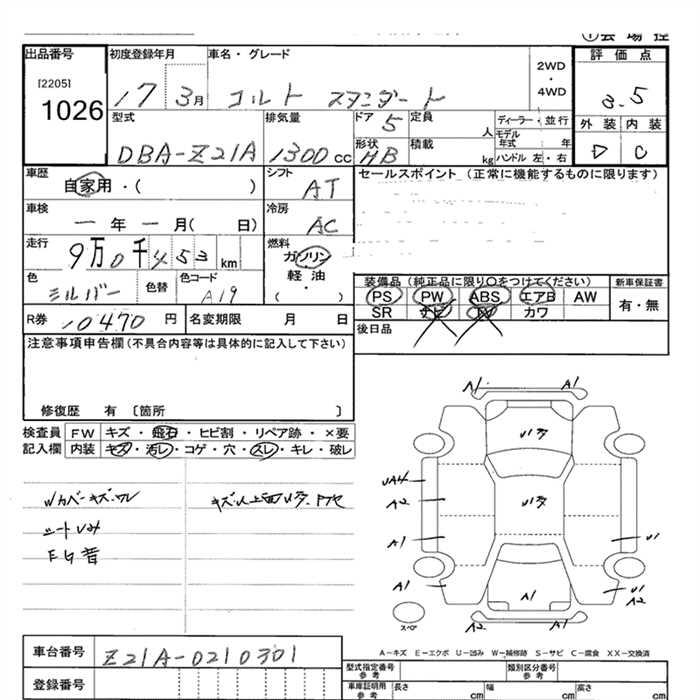 ①会場控
出品番号
[2205]
1026
初度登録年月
17 3月
車名・グレード
コルト スタンダード
2WD
・
4WD
評価点
3.5
外装 内装
D C
型式
DBA-Z21A
排気量
1300cc
ドア 5
形状 HB
定員 人
積載 kg
ディーラー・並行
モデル年式 年
ハンドル 左・右
車歴
自家用・( )
シフト
AT
セールスポイント (正常に機能するものに限ります)
車検
一年一月( 日)
冷房
AC
走行
9万0千453km
燃料
ガソリン
軽・油
( )
色
シルバー
色替
色コード
A19
装備品(純正品に限り○をつけてください)
PS PW ABS エアB AW
SR ナビ TV カワ
新車保証書
有・無
R券 10470円
名変期限 月 日
後日品
注意事項申告欄(不具合内容等は具体的に記入して下さい)
修復歴 有 〔箇所 〕
検査員
記入欄
FW キズ・飛石・ヒビ割・リペア跡・×要
内装 キズ・汚レ・コゲ・穴・スレ・キレ・破レ
Wカバーキズ・ワレ
シートしみ
EG昔
A1 A1
UA4
A2
A1
A1
A1 A1
U1
U1
A2
スペ
A-キズ E-エクボ U-凹み W-補修跡 S-サビ C-腐食 XX-交換済
車台番号
Z21A-0210301
登録番号
型式指定番号
参考
類別区分番号
参考
車庫証明用
参考
長さ cm 幅 cm 高さ cm